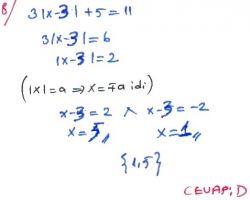 8/ 3|x-3|+5=11
3|x-3|=6
|x-3|=2
(|x|=a ⇒ x=∓a idi)
x-3=2 ∧ x-3=-2
x=5,, x=1,,
{1,5}
CEVAP: D